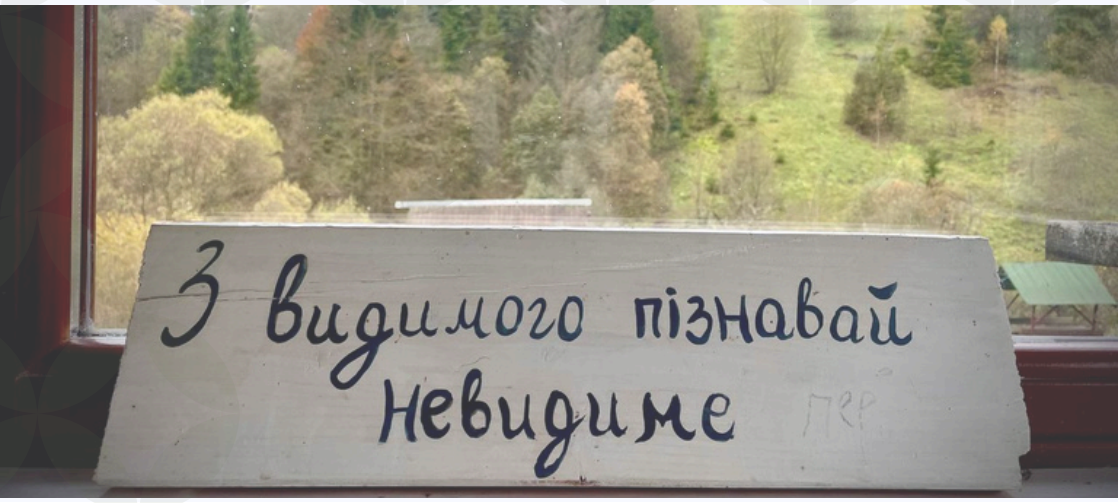 З видимого пізнавай
невидиме